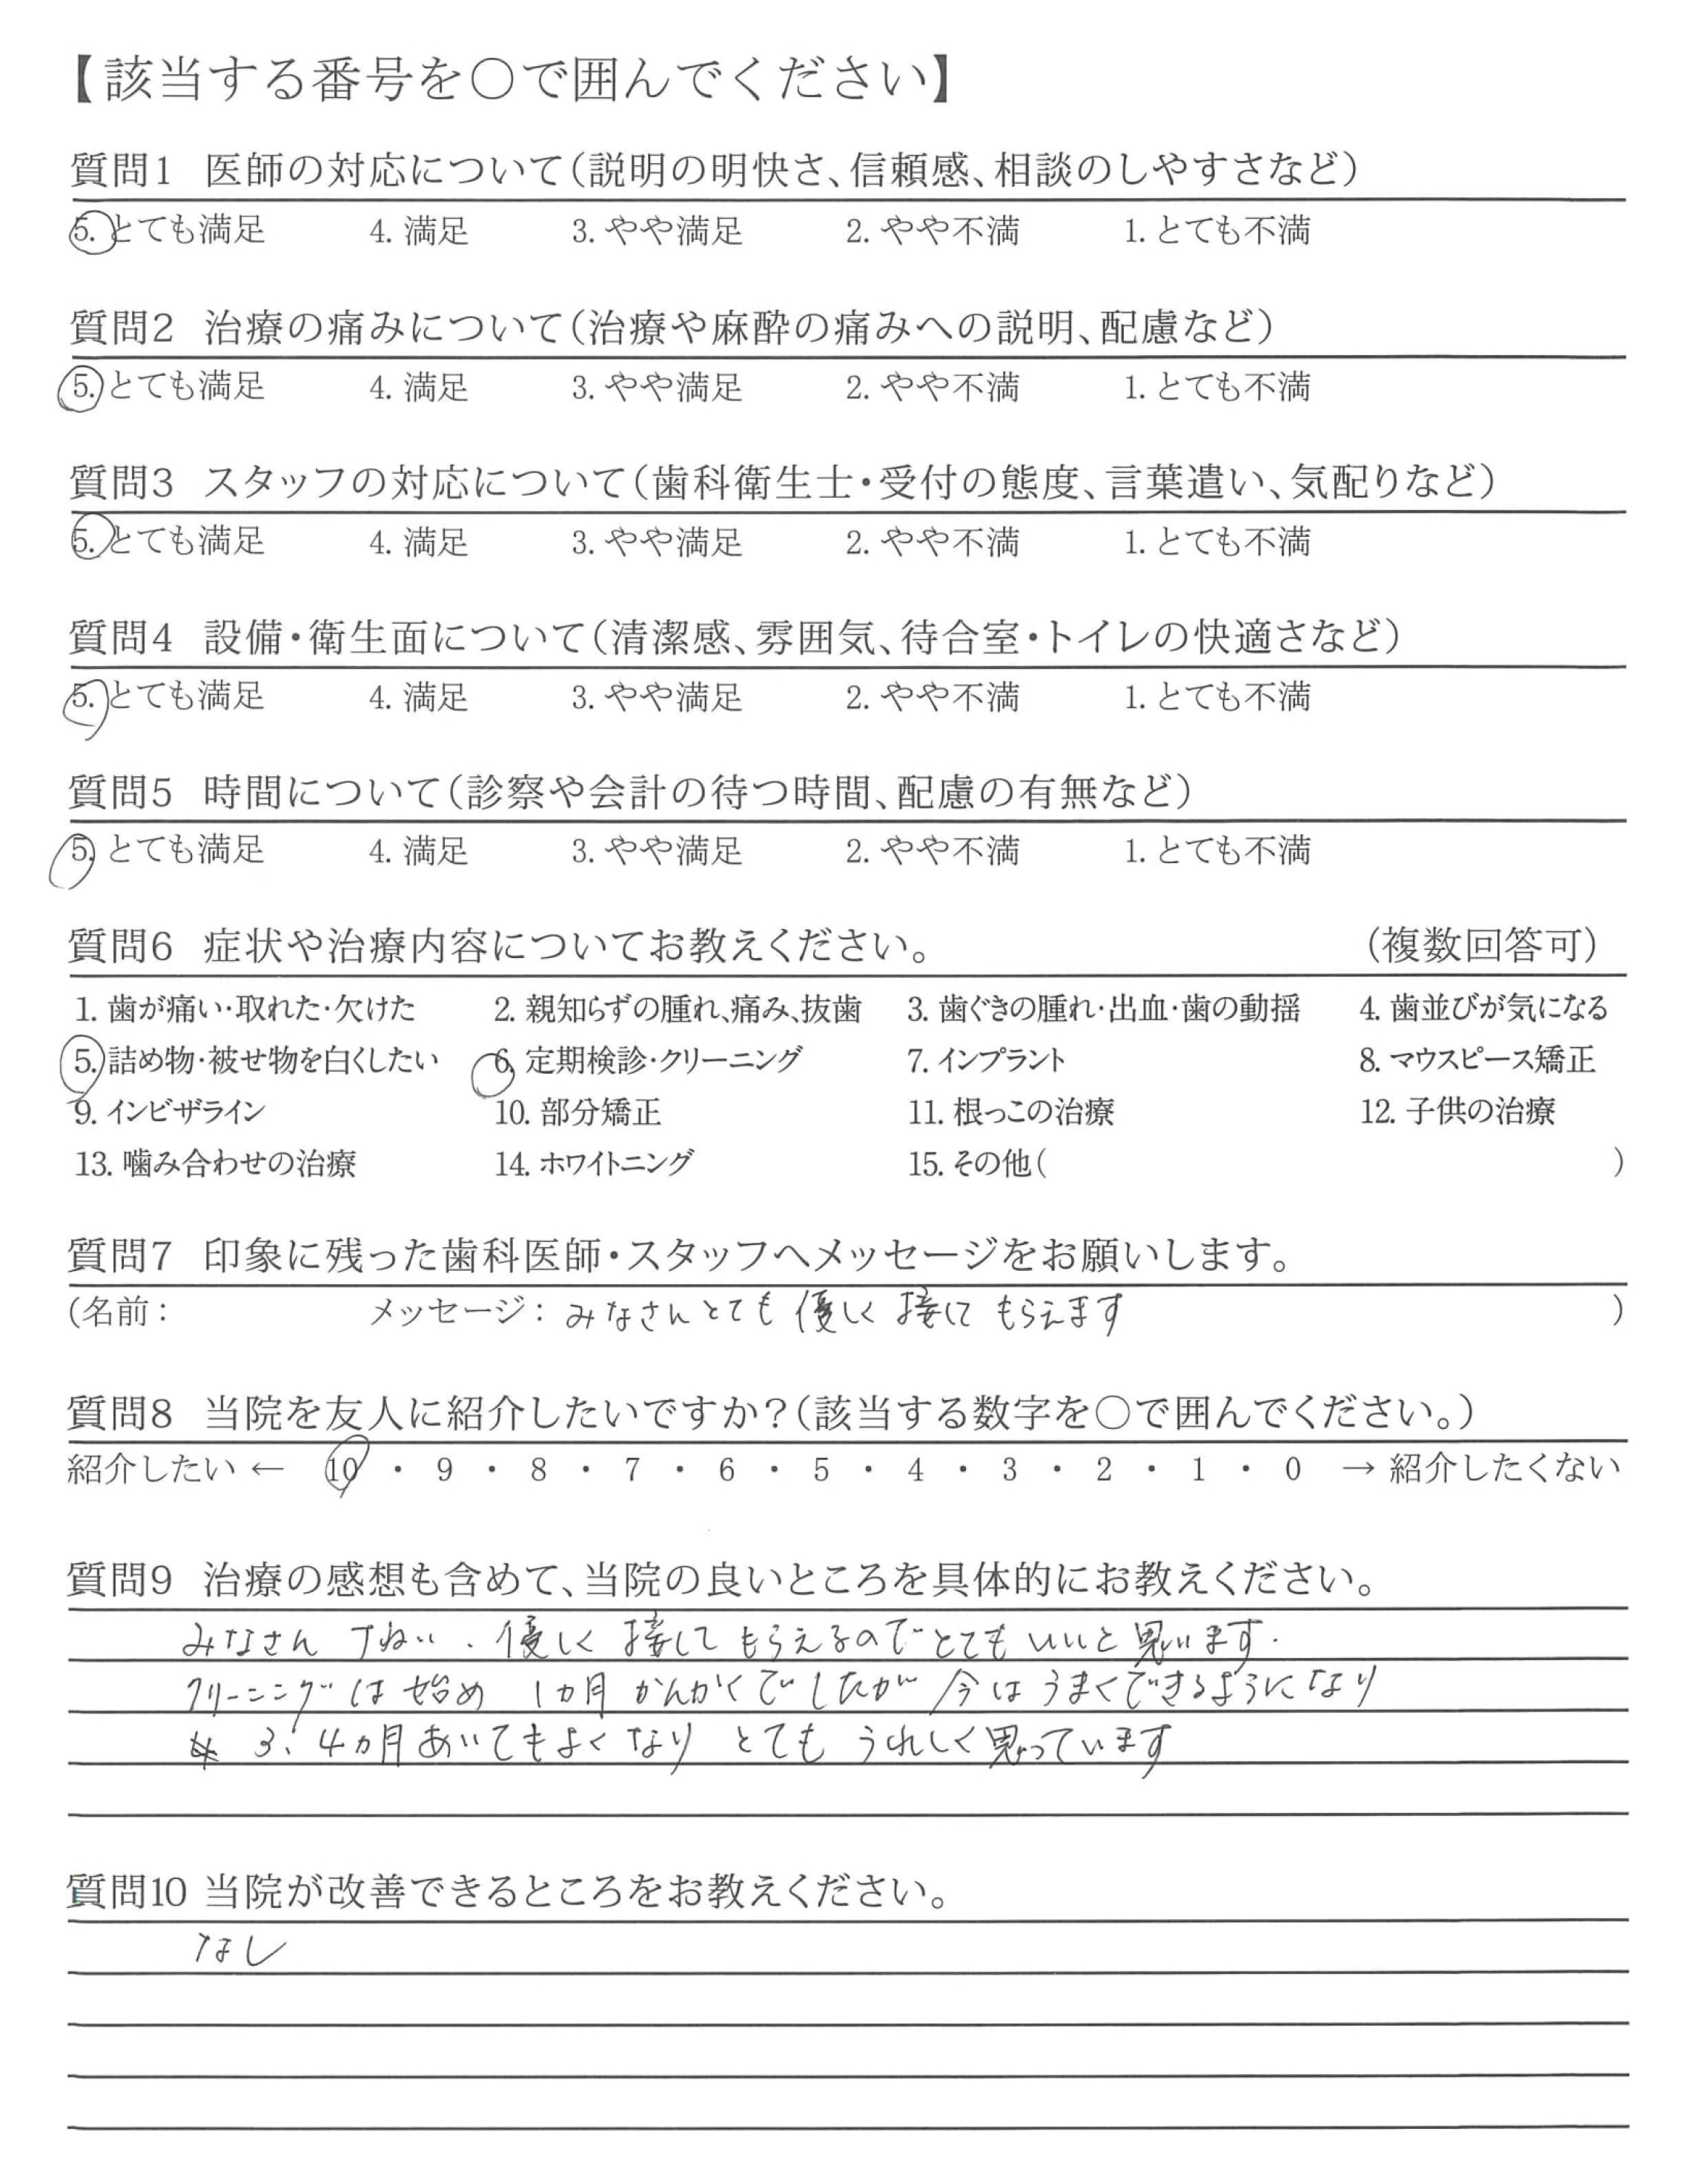 【該当する番号を○で囲んでください】
質問1 医師の対応について(説明の明快さ、信頼感、相談のしやすさなど)
5. とても満足 4. 満足 3. やや満足 2. やや不満 1. とても不満
質問2 治療の痛みについて(治療や麻酔の痛みへの説明、配慮など)
5. とても満足 4. 満足 3. やや満足 2. やや不満 1. とても不満
質問3 スタッフの対応について(歯科衛生士・受付の態度、言葉遣い、気配りなど)
5. とても満足 4. 満足 3. やや満足 2. やや不満 1. とても不満
質問4 設備・衛生面について(清潔感、雰囲気、待合室・トイレの快適さなど)
5. とても満足 4. 満足 3. やや満足 2. やや不満 1. とても不満
質問5 時間について(診察や会計の待つ時間、配慮の有無など)
5. とても満足 4. 満足 3. やや満足 2. やや不満 1. とても不満
質問6 症状や治療内容についてお教えください。 (複数回答可)
1. 歯が痛い・取れた・欠けた 2. 親知らずの腫れ、痛み、抜歯 3. 歯ぐきの腫れ・出血・歯の動揺 4. 歯並びが気になる
5. 詰め物・被せ物を白くしたい 6. 定期検診・クリーニング 7. インプラント 8. マウスピース矯正
9. インビザライン 10. 部分矯正 11. 根っこの治療 12. 子供の治療
13. 噛み合わせの治療 14. ホワイトニング 15. その他( )
質問7 印象に残った歯科医師・スタッフへメッセージをお願いします。
(名前: メッセージ: みなさんとても 優しく 接して もらえます )
質問8 当院を友人に紹介したいですか?(該当する数字を○で囲んでください。)
紹介したい ← 10 ・ 9 ・ 8 ・ 7 ・ 6 ・ 5 ・ 4 ・ 3 ・ 2 ・ 1 ・ 0 → 紹介したくない
質問9 治療の感想も含めて、当院の良いところを具体的にお教えください。
みなさん 優しく 接して もらえるのでとても いいと 思います.
クリーニングは 始め 1カ月 かんかくでしたが 今は うまくできるようになり
3、4カ月 あいてもよく なり とても うれしく 思っています
質問10 当院が改善できるところをお教えください。
なし